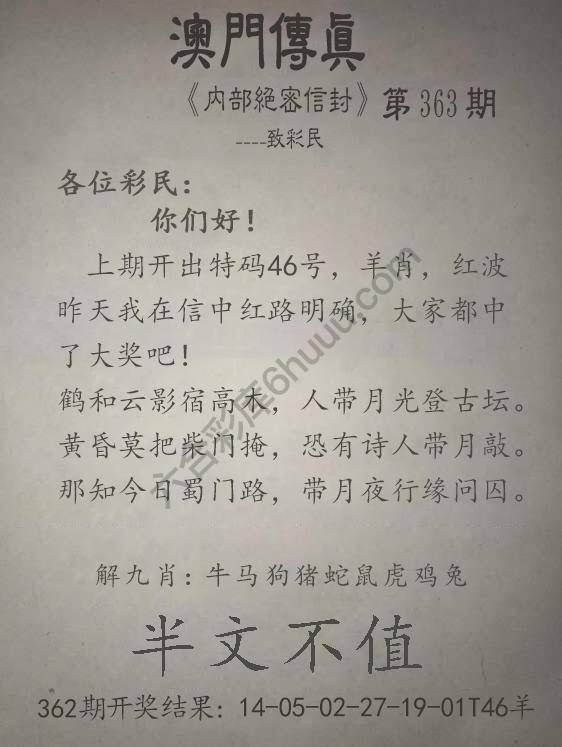 澳門傳眞
《内部絕密信封》第 363 期
----致彩民
各位彩民：
你们好！
上期开出特码46号，羊肖，红波
昨天我在信中红路明确，大家都中
了大奖吧！
鹤和云影宿高木，人带月光登古坛。
黄昏莫把柴门掩，恐有诗人带月敲。
那知今日蜀门路，带月夜行缘问囚。
六合彩库6huuu.com
解九肖：牛马狗猪蛇鼠虎鸡兔
半文不值
362期开奖结果：14-05-02-27-19-01T46羊